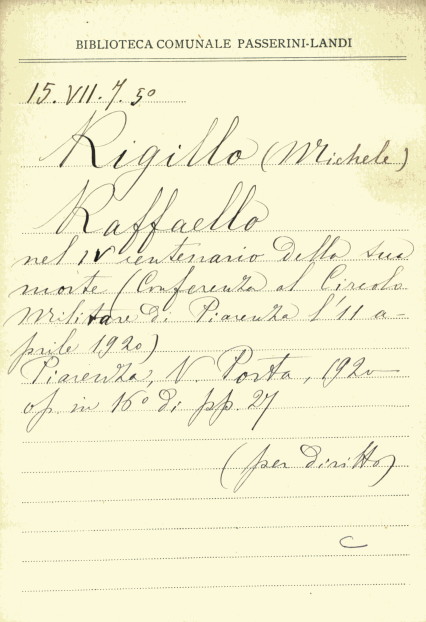 BIBLIOTECA COMUNALE PASSERINI-LANDI
15. VII. 7. 5º
Rigillo (Michele)
Raffaello
nel IV centenario della sua
morte (Conferenza al Circolo
Militare di Piacenza l'11 a-
prile 1920)
Piacenza, N. Porta, 1920
op. in 16º di pp. 27
(per diritto)
C